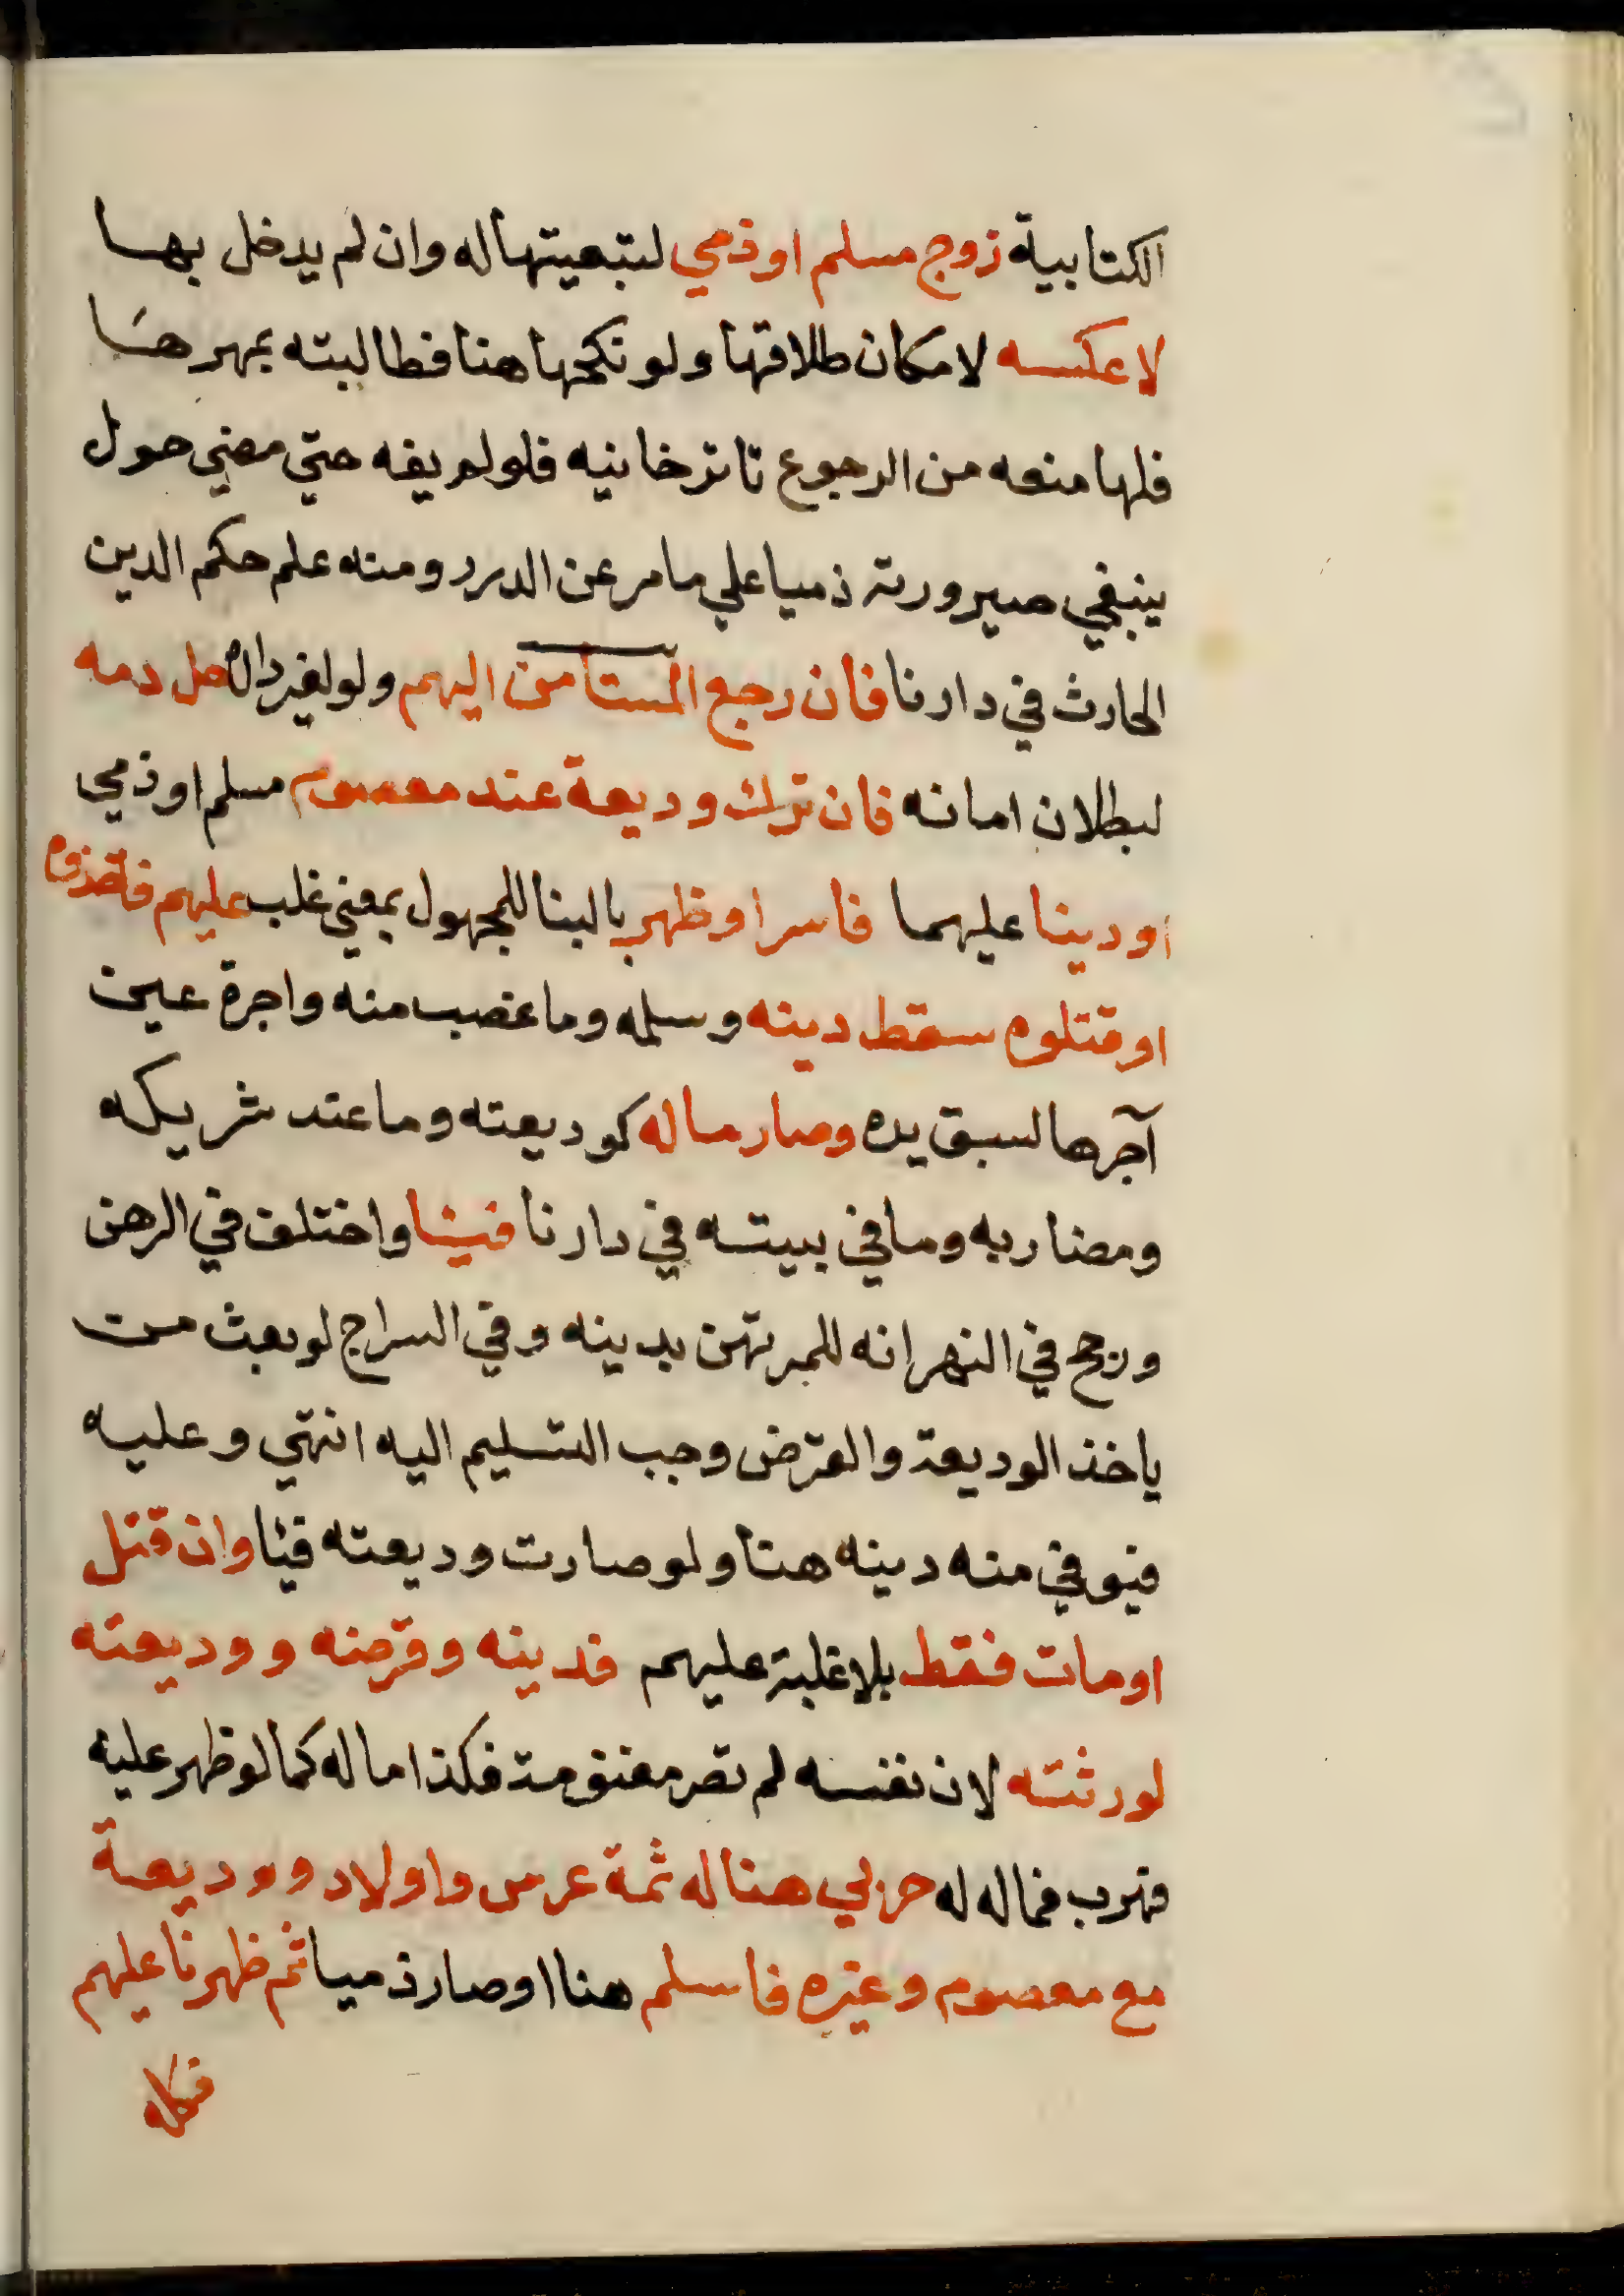 الكتابية زوج مسلم او ذمي لتبعيتها له وان لم يدخل بها
لا عكسه لامكان طلاقها ولو نكحها هنا فطالبته بمهرها
فلها منعه من الرجوع تاترخانيه فلو لم يفه حتي مضي حول
ينبغي صيرورته ذميا علي ما مر عن الدرر ومنه علم حكم الدين
الحادث في دارنا فان رجع المستأمن اليهم ولو لغير داره حل دمه
لبطلان امانه فان ترك وديعة عند معصوم مسلم او ذمي
او دينا عليهما فاسر او ظهر بالبنا للمجهول بمعني غلب عليهم فاخذوه
او قتلوه سقط دينه وسلمه وما غصب منه واجرة عين
آجرها لسبق يده وصار ماله كوديعته وما عند شريكه
ومضاربه وما في بيته في دارنا فيئا واختلف في الرهن
ورجح في النهر انه للمرتهن بدينه وفي السراج لو بعث من
ياخذ الوديعة والقرض وجب التسليم اليه انتهي وعليه
فيوفي منه دينه هنا ولو صارت وديعته فيئا وان قتل
او مات فقط بلا غلبة عليهم فدينه وقرضه ووديعته
لورثته لان نفسه لم تصر مغنومة فكذا ماله كما لو ظهر عليه
فهرب فماله له حربي هنا له ثمة عرس واولاد ووديعة
مع معصوم وغيره فاسلم هنا او صار ذميا ثم ظهرنا عليهم
فكله